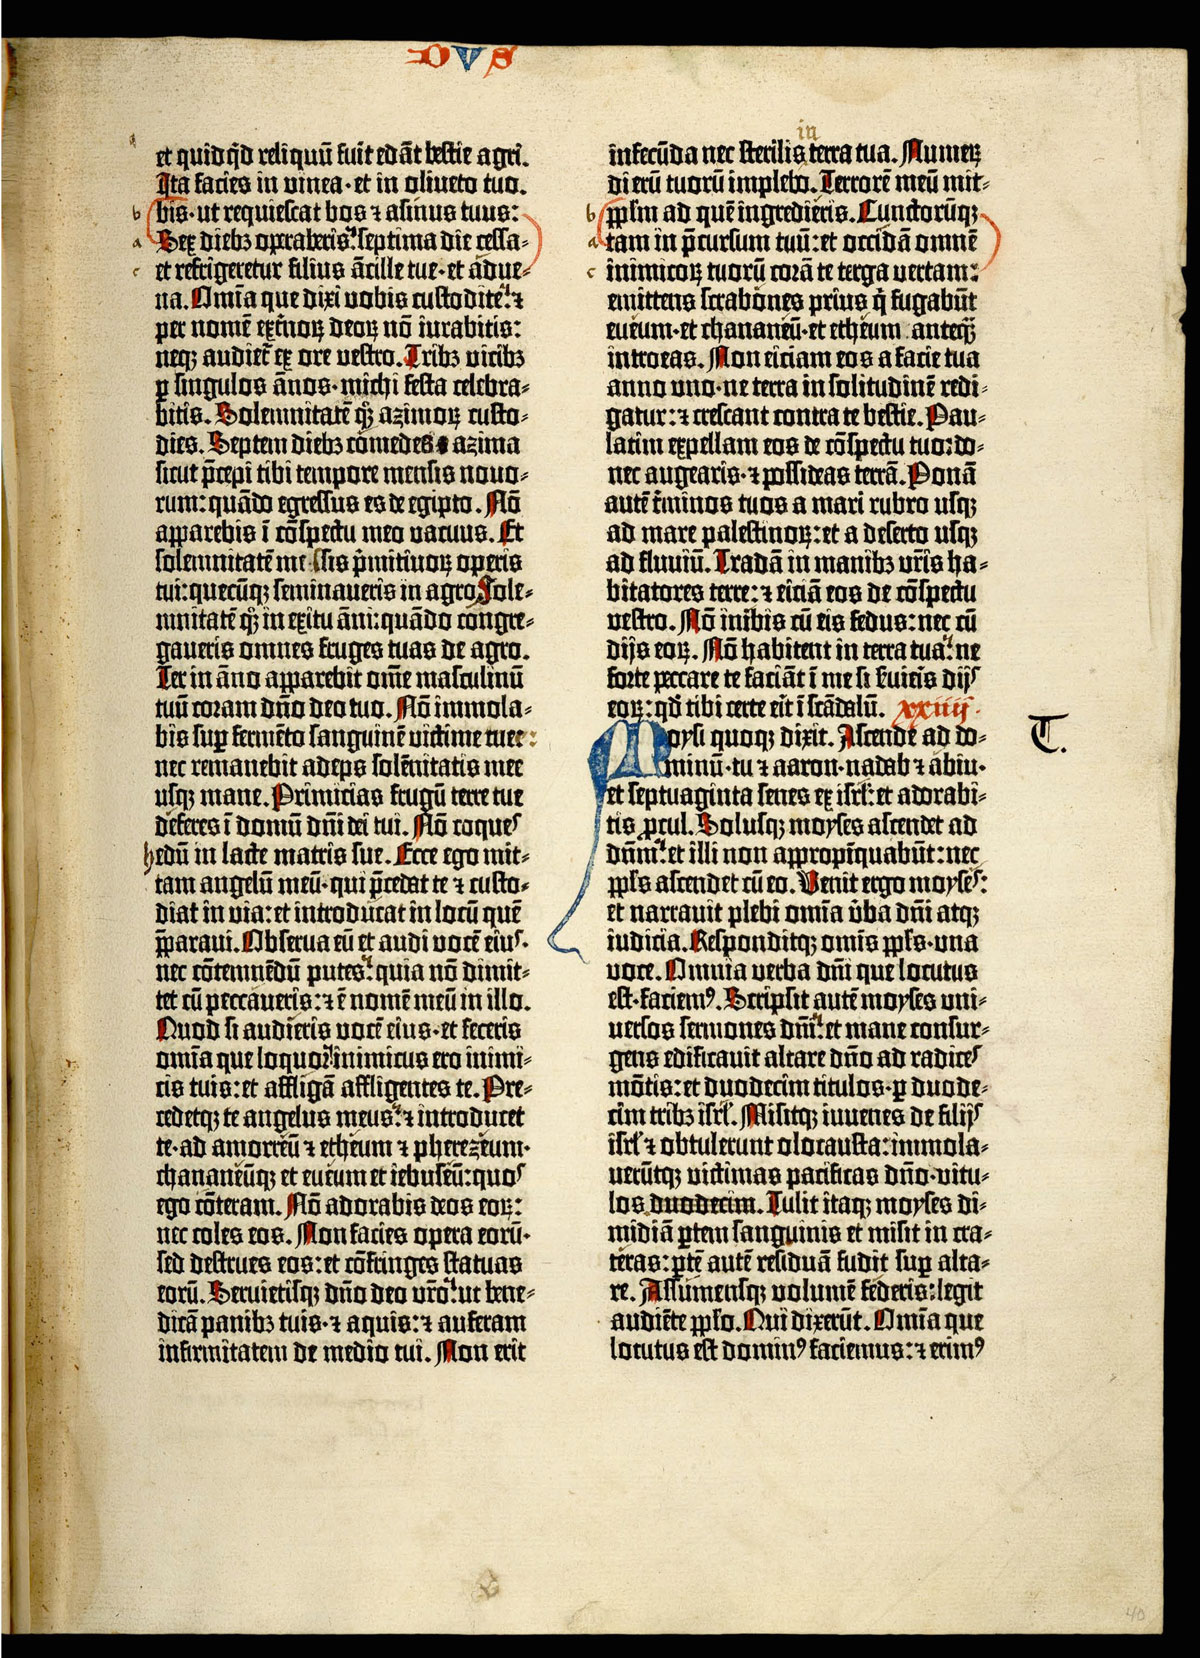 DVS
et quid q̄d reliquū fuit edāt bestie agri.
Ita facies in vinea·et in oliveto tuo.
b bis·ut requiescat bos ⁊ asinus tuus:
a Sex diebꝫ opꝛaberis: septima die cessa-
c et refrigeretur filius ācille tue·et adue-
na. Om̄ia que dixi vobis custodite: ⁊
per nomē ext̄noꝝ deoꝝ nō iurabitis:
neqꝫ audiet̄ ex ore vestro. Tribꝫ vicibꝫ
ꝑ singulos ānos·michi festa celebra-
bitis. Solemnitatē q̄ꝫ azimoꝝ custo-
dies. Septem diebꝫ cōmedes azima
sicut p̄cepi tibi tempore mensis novo-
rum: quādo egressus es de egipto. Nō
apparebis ī cōspectu meo vacuus. Et
solemnitatē messis p̄mitivoꝝ operis
tui: quecūqꝫ seminaveris in agro. Sole-
mnitatē q̄ꝫ in exitu āni: quādo congre-
gaveris omnes fruges tuas de agro.
Ter in āno apparebit om̄e masculinū
tuū coram dn̄o deo tuo. Nō immola-
bis suꝑ fermēto sanguinē victime tue:
nec remanebit adeps solēnitatis mee
usqꝫ mane. Primicias frugū terre tue
deferes ī domū dn̄i dei tui. Nō coques
hedū in lacte matris sue. Ecce ego mit-
tam angelū meū·qui p̄cedat te ⁊ custo-
diat in via: et introducat in locū quē
p̄paravi. Observa eū et audi vocē eius·
nec cōtemnēdū putes: quia nō dimit-
tet cū peccaveris: ⁊ ē nomē meū in illo.
Quod si audieris vocē eius·et feceris
om̄ia que loquor: inimicus ero inimi-
cis tuis: et affligā affligentes te. Pre-
cedetqꝫ te angelus meus: ⁊ introducet
te·ad amorreū ⁊ etheum ⁊ pherezeum·
chananeūqꝫ et eveum et iebuseū: quos
ego cōteram. Nō adorabis deos eoꝝ:
nec coles eos. Non facies opera eorū·
sed destrues eos: et cōfringes statuas
eorū. Servietisqꝫ dn̄o deo vr̄o: ut bene-
dicā panibꝫ tuis·⁊ aquis: ⁊ auferam
infirmitatem de medio tui. Non erit
in
infecūda nec sterilis terra tua. Numeꝝ
dierū tuorū implebo. Terrorē meū mit-
b pp̄lm ad quē ingredieris. Cunctorūqꝫ
a tam in p̄cursum tuū: et occidā omnē
c inimicoꝝ tuorū corā te terga vertam:
emittens scrabones prius q̄ fugabūt
eveum·et chananeū·et etheum anteqꝫ̄
introeas. Non eiciam eos a facie tua
anno uno·ne terra in solitudinē redi-
gatur: ⁊ crescant contra te bestie. Pau-
latim expellam eos de cōspectu tuo: do-
nec augearis·⁊ possideas terrā. Ponā
autē t̄minos tuos a mari rubro usqꝫ
ad mare palestinoꝝ: et a deserto usqꝫ
ad fluviū. Tradā in manibꝫ vr̄is ha-
bitatores terre: ⁊ eiciā eos de cōspectu
vestro. Nō inibis cū eis fedus: nec cū
dijs eoꝝ. Nō habitent in terra tua: ne
forte peccare te faciāt ī me si s̄vieris dijs
eoꝝ: qd̄ tibi certe erit ī scādalū. xxiiij·
Moysi quoqꝫ dixit. Ascende ad do-
T.
minū·tu ⁊ aaron·nadab ⁊ abiu·
et septuaginta senes ex isrl̄: et adorabi-
tis ꝓcul. Solusqꝫ moyses ascendet ad
dn̄m: et illi non appropīquabūt: nec
pp̄ls ascendet cū eo. Venit ergo moyses:
et narravit plebi om̄ia v̄ba dn̄i atqꝫ
iudicia. Responditqꝫ omīs pp̄ls·una
voce. Omnia verba dn̄i que locutus
est·faciemꝰ. Scripsit autē moyses uni-
versos sermones dn̄i: et mane consur-
gens edificavit altare dn̄o ad radices
mōtis: et duodecim titulos·ꝑ duode-
cim tribꝫ isrl̄. Misitqꝫ iuvenes de filijs
isrl̄ ⁊ obtulerunt olocausta: immola-
verūtqꝫ victimas pacificas dn̄o·vitu-
los duodecim. Tulit itaqꝫ moyses di-
midiā ꝑtem sanguinis et misit in cra-
teras: ꝑtē autē residuā fudit suꝑ alta-
re. Assumensqꝫ volumē federis: legit
audiēte pp̄lo. Qui dixerūt. Om̄ia que
locutus est dominꝰ faciemus: ⁊ erimꝰ
40